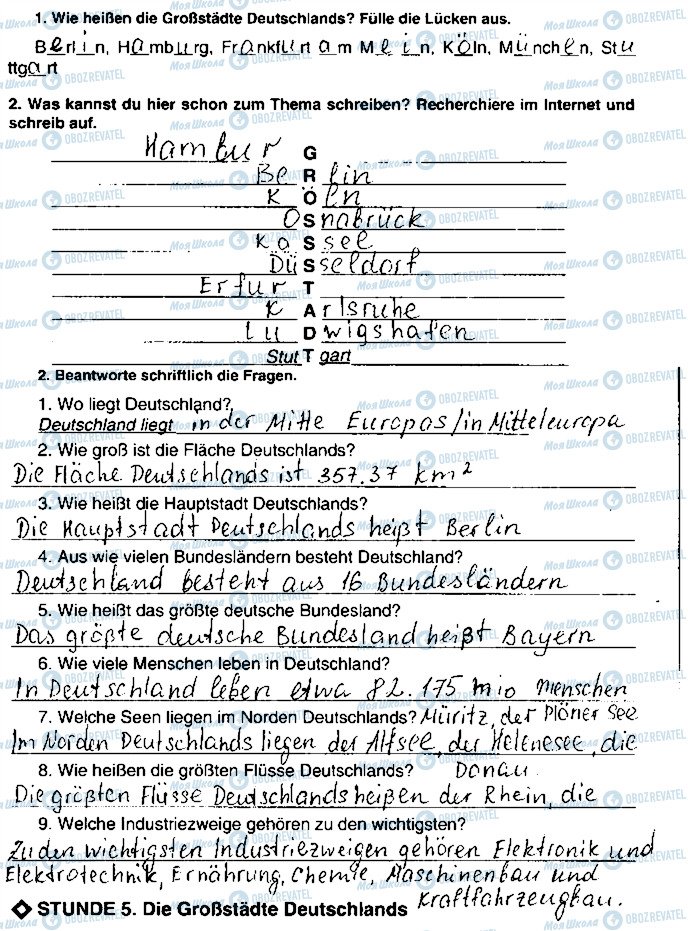 1. Wie heißen die Großstädte Deutschlands? Fülle die Lücken aus.
Berlin, Hamburg, Frankfurt am Mein, Köln, München, Stu
ttgart
2. Was kannst du hier schon zum Thema schreiben? Recherchiere im Internet und
schreib auf.
Hambur G
Be R lin
K Ö ln
O S nabrück
Ka S sel
Dü S seldorf
Erfur T
K A rlsruhe
Lu D wigshafen
Stut T gart
2. Beantworte schriftlich die Fragen.
1. Wo liegt Deutschland?
Deutschland liegt in der Mitte Europas/in Mitteleuropa
2. Wie groß ist die Fläche Deutschlands?
Die Fläche Deutschlands ist 357.37 km²
3. Wie heißt die Hauptstadt Deutschlands?
Die Hauptstadt Deutschlands heißt Berlin
4. Aus wie vielen Bundesländern besteht Deutschland?
Deutschland besteht aus 16 Bundesländern
5. Wie heißt das größte deutsche Bundesland?
Das größte deutsche Bundesland heißt Bayern
6. Wie viele Menschen leben in Deutschland?
In Deutschland leben etwa 82.175 mio menschen
7. Welche Seen liegen im Norden Deutschlands? Müritz, der Plöner See
Im Norden Deutschlands liegen der Altsee, der Helenesee, die
8. Wie heißen die größten Flüsse Deutschlands? Donau.
Die größten Flüsse Deutschlands heißen der Rhein, die
9. Welche Industriezweige gehören zu den wichtigsten?
Zu den wichtigsten Industriezweigen gehören Elektronik und
Elektrotechnik, Ernährung, Chemie, Maschinenbau und
Kraftfahrzeugbau.
STUNDE 5. Die Großstädte Deutschlands
Моя Школа OBOZREVATEL